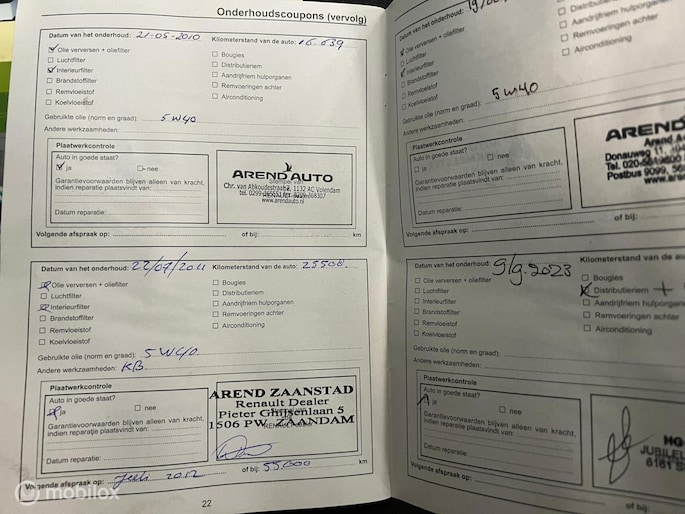 Onderhoudscoupons (vervolg)
Datum van het onderhoud: 21-05-2010 Kilometerstand van de auto: 16.639
Olie verversen + oliefilter
Luchtfilter
Interieurfilter
Brandstoffilter
Remvloeistof
Koelvloeistof
Bougies
Distributieriem
Aandrijfriem hulporganen
Remvoeringen achter
Airconditioning
Gebruikte olie (norm en graad): 5W40
Andere werkzaamheden:
Plaatwerkcontrole
Auto in goede staat?
ja nee
Garantievoorwaarden blijven allen van kracht,
indien reparatie plaatsvindt van:
Datum reparatie:
AREND AUTO
Chr. van Abkoudestraat 2, 1132 AC Volendam
www.arendauto.nl
Volgende afspraak op: of bij: km
Datum van het onderhoud: 22/07/2011 Kilometerstand van de auto: 25500.
Olie verversen + oliefilter
Luchtfilter
Interieurfilter
Brandstoffilter
Remvloeistof
Koelvloeistof
Bougies
Distributieriem
Aandrijfriem hulporganen
Remvoeringen achter
Airconditioning
Gebruikte olie (norm en graad): 5W40.
Andere werkzaamheden: KB.
Plaatwerkcontrole
Auto in goede staat?
ja nee
Garantievoorwaarden blijven allen van kracht,
indien reparatie plaatsvindt van:
Datum reparatie:
AREND ZAANSTAD
Renault Dealer
Pieter Ghijsenlaan 5
1506 PW, ZAANDAM
Volgende afspraak op: Juli 2012 of bij: 55000 km
22
Datum van het onderhoud: 19/0
Olie verversen + oliefilter
Luchtfilter
Interieurfilter
Brandstoffilter
Remvloeistof
Koelvloeistof
Distributieriem
Aandrijfriem hulporg
Remvoeringen achter
Airconditioning
Gebruikte olie (norm en graad): 5W40
Andere werkzaamheden:
Plaatwerkcontrole
Auto in goede staat?
ja nee
Garantievoorwaarden blijven allen van kracht,
indien reparatie plaatsvindt van:
Datum reparatie:
AREND
Arend Auto
Donauweg 11, 104
Postbus 9099,
www.are
Volgende afspraak op: of bij:
Datum van het onderhoud: 9/9.2023 Kilometerstand van de au
Olie verversen + oliefilter
Luchtfilter
Interieurfilter
Brandstoffilter
Remvloeistof
Koelvloeistof
Bougies
Distributieriem +
Aandrijfriem hulporganen
Remvoeringen achter
Airconditioning
Gebruikte olie (norm en graad):
Andere werkzaamheden:
Plaatwerkcontrole
Auto in goede staat?
ja nee
Garantievoorwaarden blijven allen van kracht,
indien reparatie plaatsvindt van:
Datum reparatie:
HG
JUBILEU
Volgende afspraak op: of bij:
mobilox